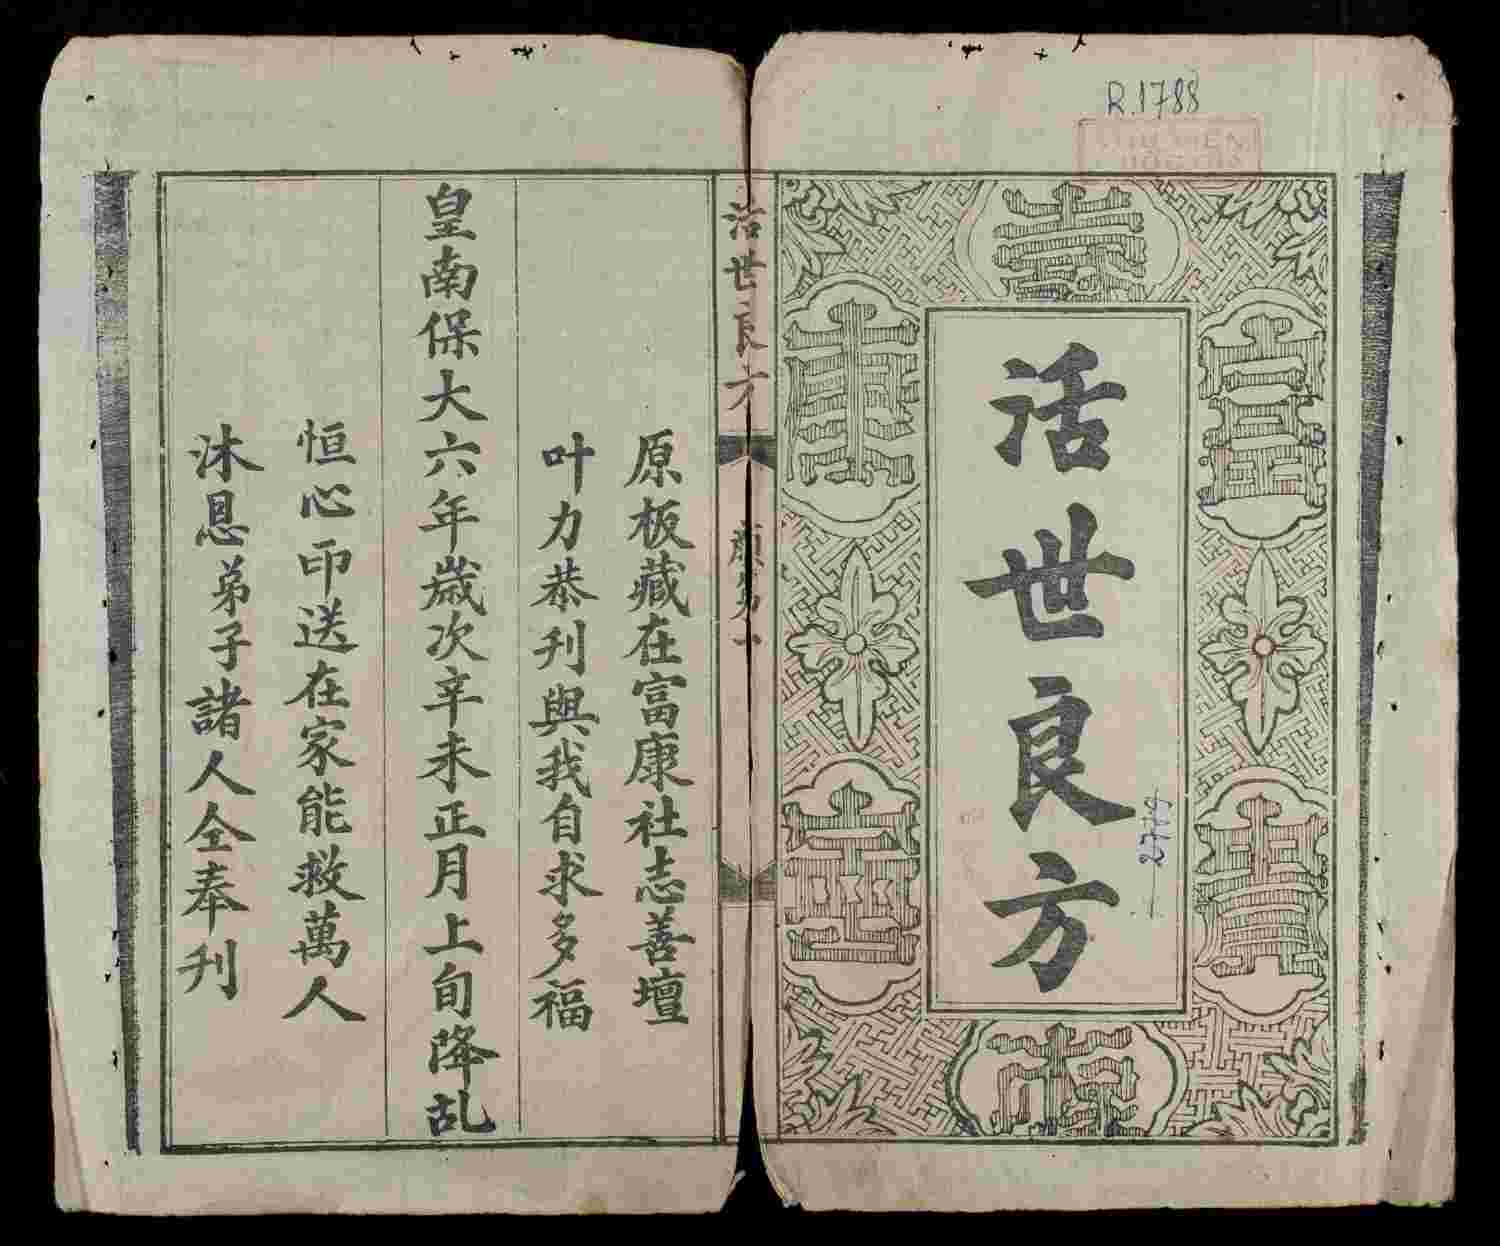 R.1788
活世良方
2779
活世良方
原板藏在富康社志善壇
叶力恭刊與我自求多福
皇南保大六年歲次辛未正月上旬降乩
恒心印送在家能救萬人
沐恩弟子諸人仝奉刊